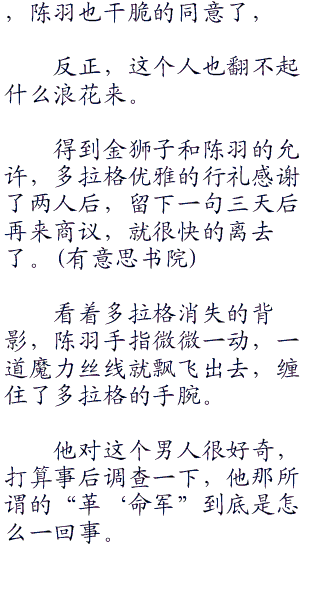 ，陈羽也干脆的同意了，
反正，这个人也翻不起
什么浪花来。
得到金狮子和陈羽的允
许，多拉格优雅的行礼感谢
了两人后，留下一句三天后
再来商议，就很快的离去
了。(有意思书院)
看着多拉格消失的背
影，陈羽手指微微一动，一
道魔力丝线就飘飞出去，缠
住了多拉格的手腕。
他对这个男人很好奇，
打算事后调查一下，他那所
谓的“革‘命军”到底是怎
么一回事。